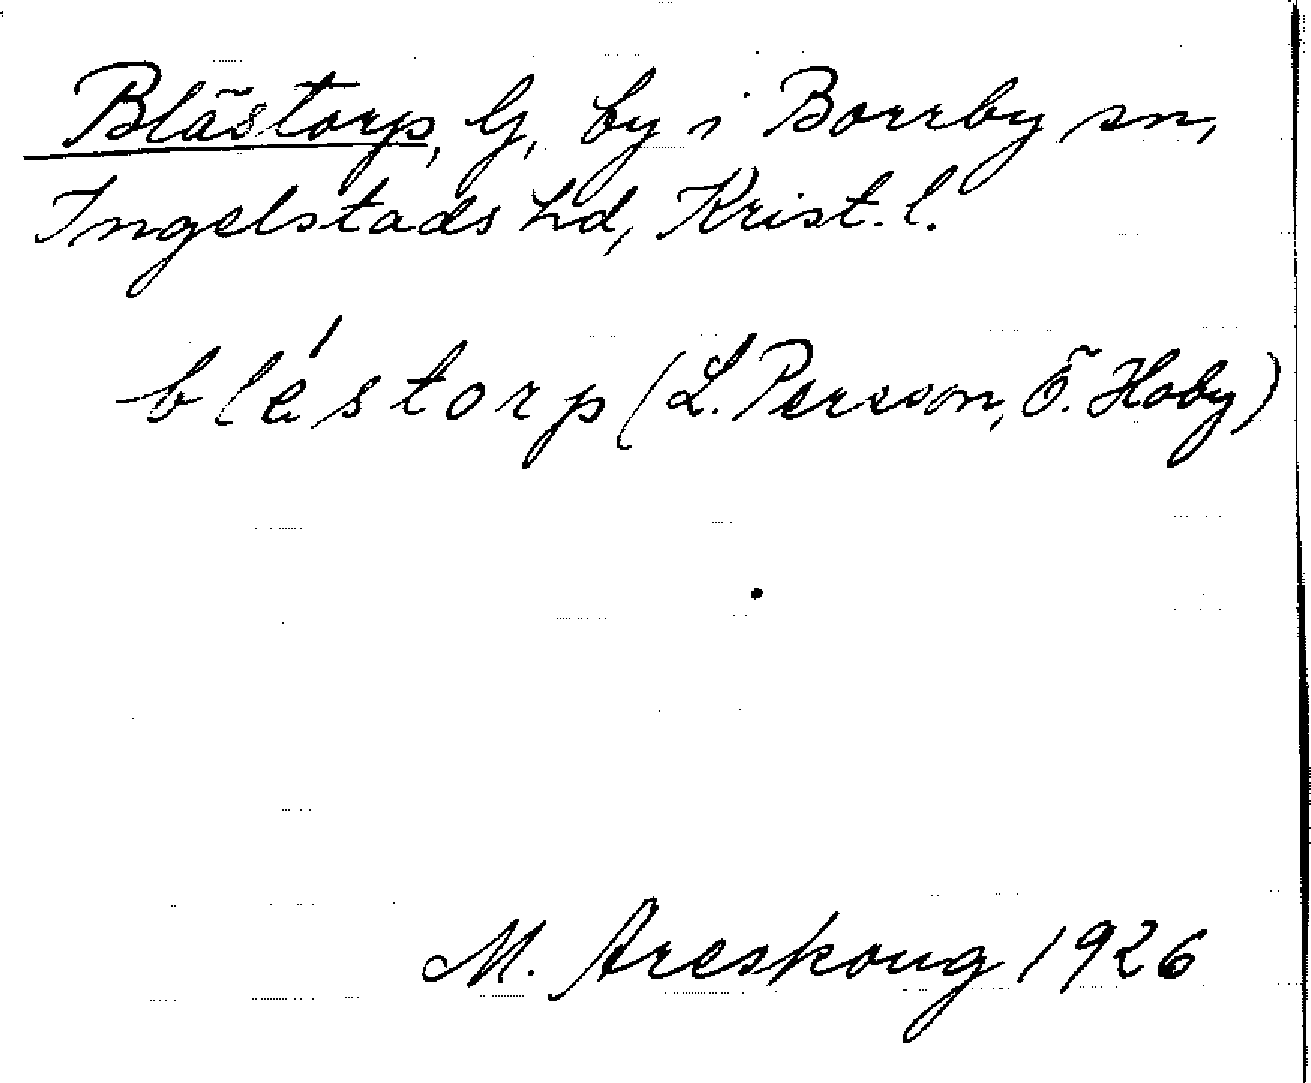 Blästorp, G, by i Borrby sn,
Ingelstads hd, Krist. l.
bléstorp (L. Persson, Ö. Hoby)
M. Areskoug 1926